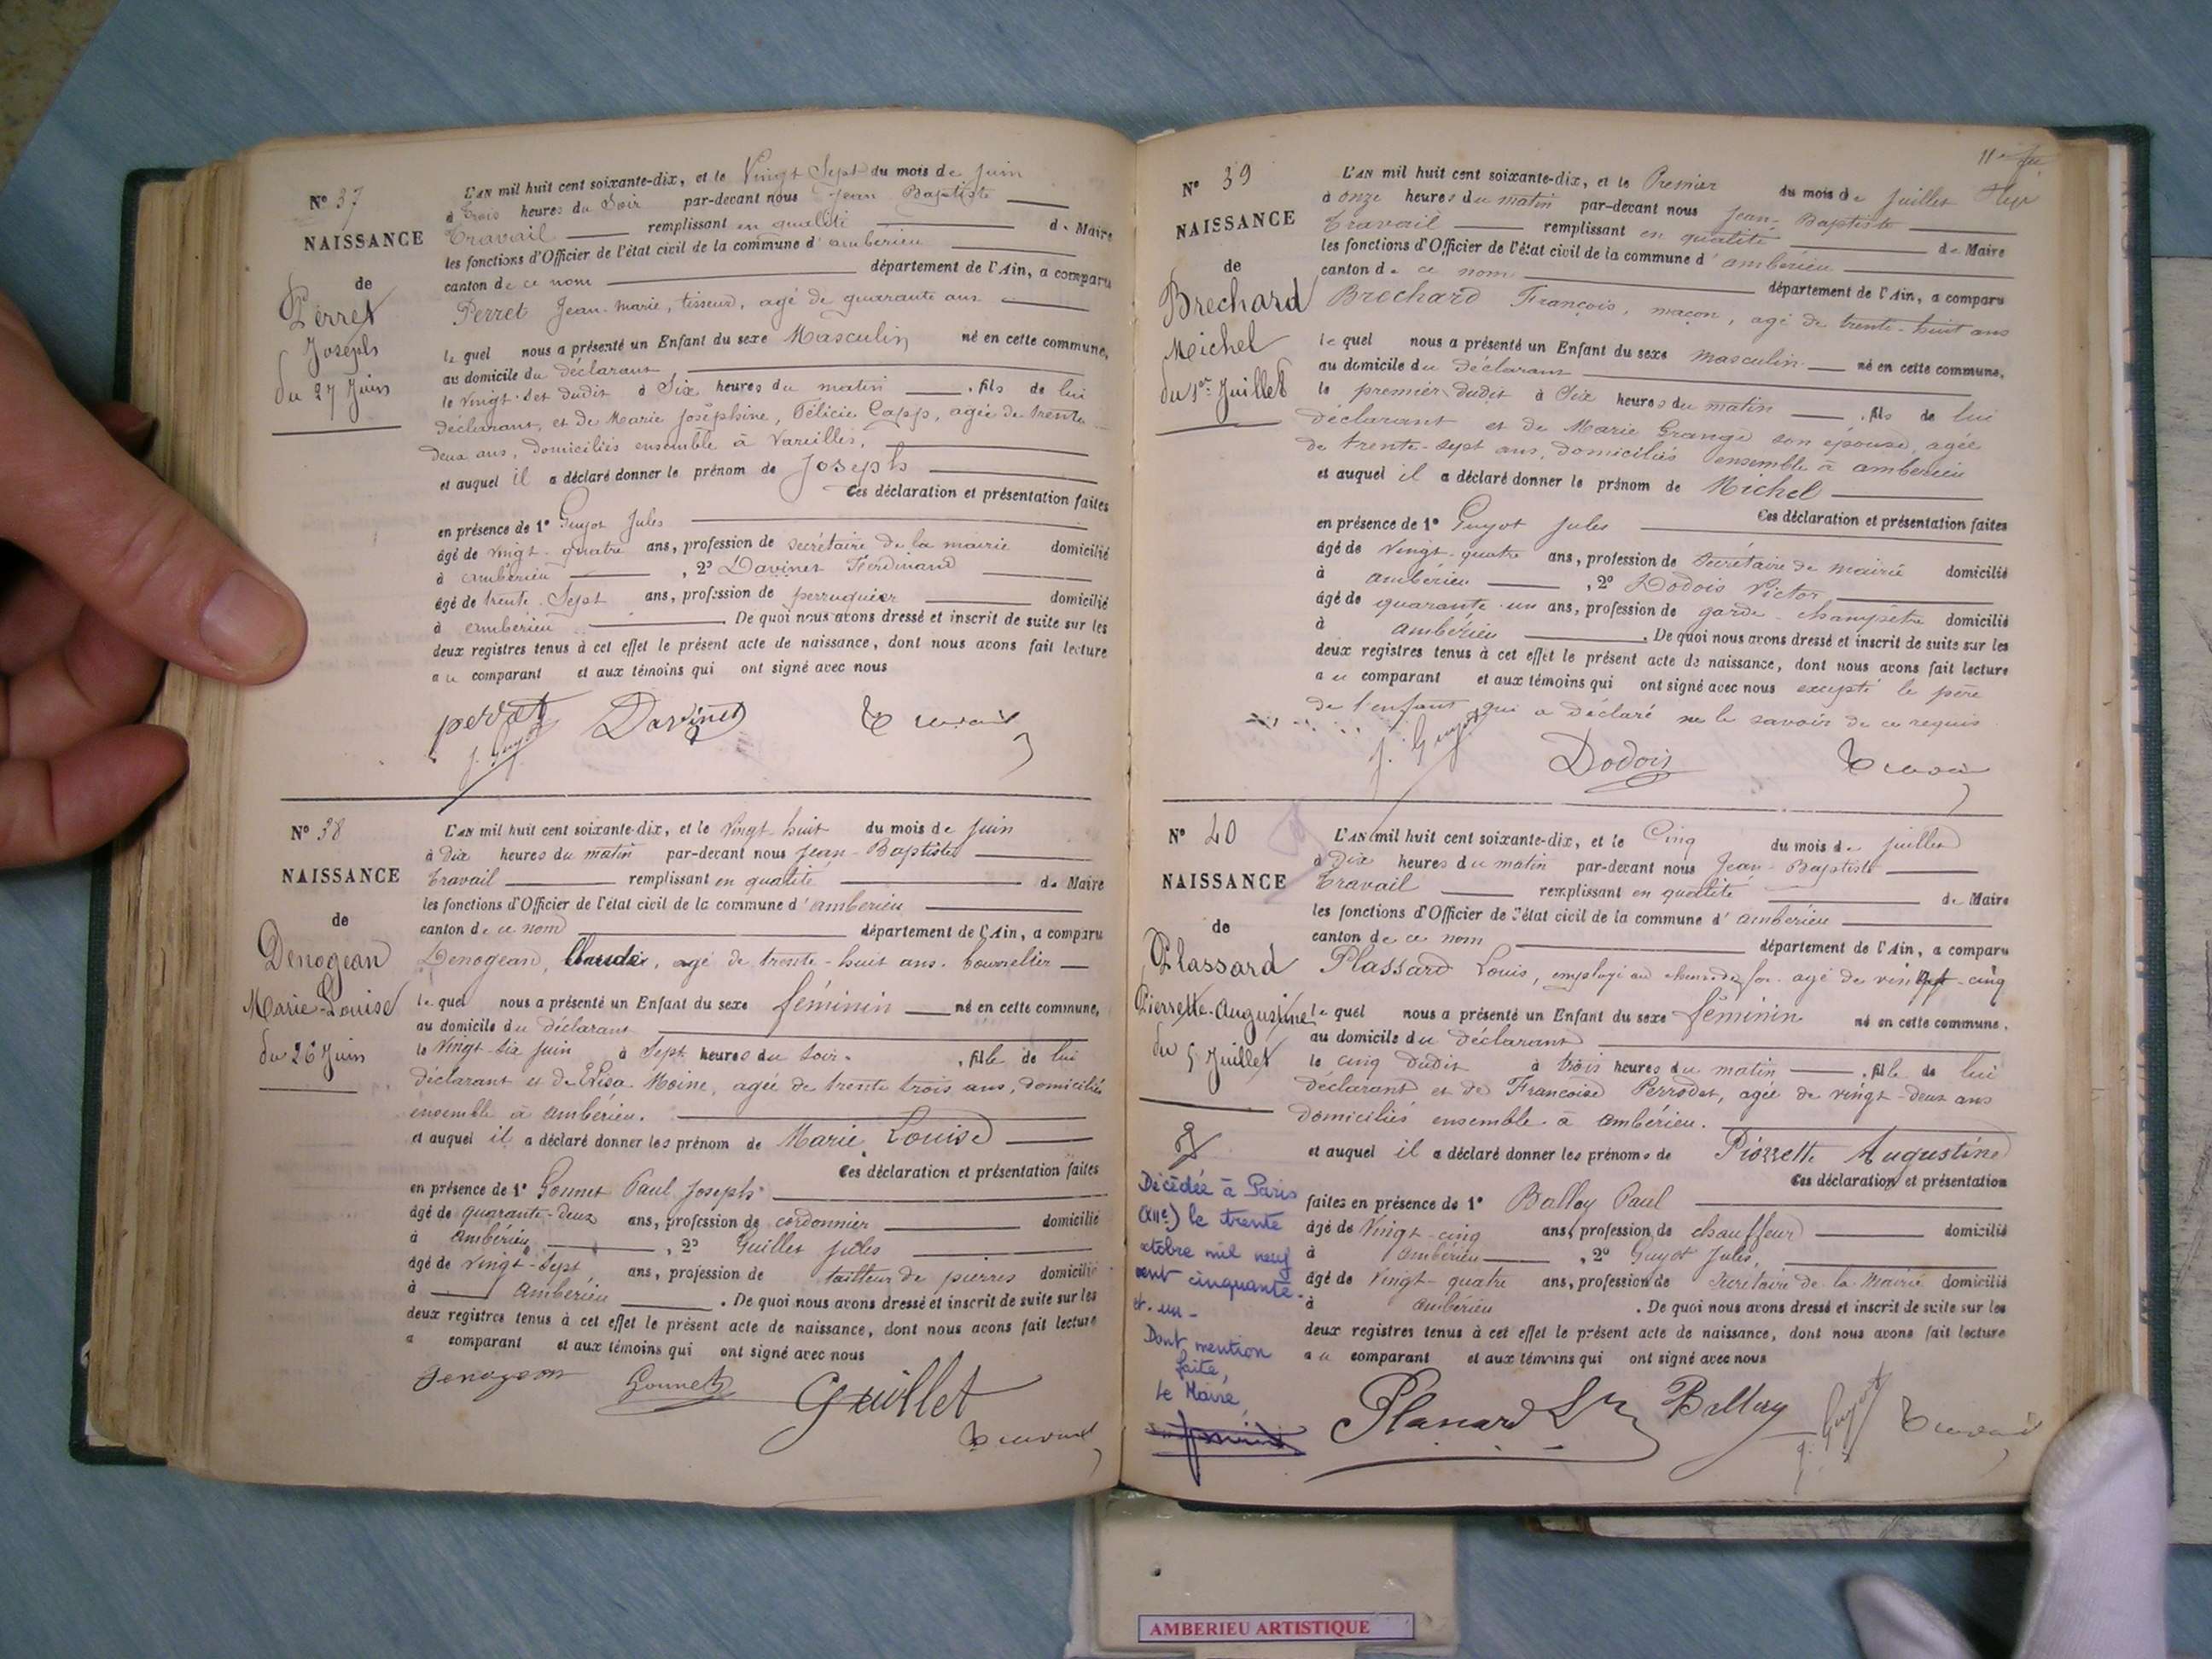 N° 37
NAISSANCE
de
Perret
Joseph
du 27 Juin
L'AN mil huit cent soixante-dix, et le Vingt Sept du mois de Juin
à trois heures du Soir par-devant nous Jean Baptiste
Travail remplissant en qualité de Maire
les fonctions d'Officier de l'état civil de la commune d'ambérieu
canton de ce nom département de l'Ain, a comparu
Perret Jean-marie, tisseur, agé de quarante ans
le quel nous a présenté un Enfant du sexe Masculin né en cette commune,
au domicile du déclarant
le vingt-Set dudit à Six heures du matin , fils de lui
déclarant, et de Marie Joséphine, Félicie Capp, agée de trente
deux ans, domiciliés ensemble à Vareilles,
et auquel il a déclaré donner le prénom de Joseph
Ces déclaration et présentation faites
en présence de 1° Guyot Jules
âgé de vingt-quatre ans, profession de secrétaire de la mairie domicilié
à ambérieu , 2° Davinet Ferdinand
âgé de trente-Sept ans, profession de perruquier domicilié
à ambérieu . De quoi nous avons dressé et inscrit de suite sur les
deux registres tenus à cet effet le présent acte de naissance, dont nous avons fait lecture
au comparant et aux témoins qui ont signé avec nous
perret Davinet Travail
J. Guyot
N° 38
NAISSANCE
de
Denogean
Marie-Louise
du 26 Juin
L'AN mil huit cent soixante-dix, et le Vingt huit du mois de Juin
à Dix heures du matin par-devant nous Jean-Baptiste
Travail remplissant en qualité de Maire
les fonctions d'Officier de l'état civil de la commune d'ambérieu
canton de ce nom département de l'Ain, a comparu
Denogean, Claude, agé de trente-huit ans. bourrelier
le quel nous a présenté un Enfant du sexe féminin né en cette commune,
au domicile du déclarant
le Vingt-Six Juin à Sept heures du Soir. , fille de lui
déclarant et de Elisa Moine, agée de trente trois ans, domiciliés
ensemble à ambérieu.
et auquel il a déclaré donner les prénom de Marie Louise
Ces déclaration et présentation faites
en présence de 1° Gonnet Paul Joseph
âgé de quarante-deux ans, profession de cordonnier domicilié
à ambérieu , 2° Guillet Jules
âgé de Vingt-Sept ans, profession de tailleur de pierres domicilié
à ambérieu . De quoi nous avons dressé et inscrit de suite sur les
deux registres tenus à cet effet le présent acte de naissance, dont nous avons fait lecture
a comparant et aux témoins qui ont signé avec nous
Denogean Gonnet Guillet
Travail
11e
N° 39
NAISSANCE
de
Brechard
Michel
du 1er Juillet
L'AN mil huit cent soixante-dix, et le Premier du mois de Juillet
à onze heures du matin par-devant nous Jean-Baptiste
Travail remplissant en qualité de Maire
les fonctions d'Officier de l'état civil de la commune d'ambérieu
canton de ce nom département de l'Ain, a comparu
Brechard François, maçon, agé de trente-huit ans
le quel nous a présenté un Enfant du sexe masculin né en cette commune,
au domicile du déclarant
le premier dudit à Six heures du matin , fils de lui
déclarant et de Marie Grange son épouse, agée
de trente-sept ans, domiciliés ensemble à ambérieu
et auquel il a déclaré donner le prénom de Michel
Ces déclaration et présentation faites
en présence de 1° Guyot Jules
âgé de vingt-quatre ans, profession de Secrétaire de mairie domicilié
à ambérieu , 2° Dodois Victor
âgé de quarante-un ans, profession de garde-champêtre domicilié
à ambérieu . De quoi nous avons dressé et inscrit de suite sur les
deux registres tenus à cet effet le présent acte de naissance, dont nous avons fait lecture
au comparant et aux témoins qui ont signé avec nous excepté le père
de l'enfant qui a déclaré ne le savoir de ce requis
J. Guyot Dodois Travail
N° 40
NAISSANCE
de
Plassard
Pierrette-Augustine
du 5 Juillet
L'AN mil huit cent soixante-dix, et le Cinq du mois de juillet
à Dix heures du matin par-devant nous Jean-Baptiste
Travail remplissant en qualité de Maire
les fonctions d'Officier de l'état civil de la commune d'ambérieu
canton de ce nom département de l'Ain, a comparu
Plassard Louis, employé au chemin de fer agé de vingt-cinq
le quel nous a présenté un Enfant du sexe féminin né en cette commune,
au domicile du déclarant
le cinq dudit à trois heures du matin , fille de lui
déclarant et de Françoise Perrodet, agée de vingt-deux ans
domiciliés ensemble à ambérieu.
et auquel il a déclaré donner les prénoms de Pierrette Augustine
Ces déclaration et présentation
faites en présence de 1° Balloy Paul
âgé de Vingt-cinq ans, profession de chauffeur domicilié
à ambérieu , 2° Guyot Jules,
âgé de Vingt-quatre ans, profession de Secrétaire de la Mairie domicilié
à ambérieu . De quoi nous avons dressé et inscrit de suite sur les
deux registres tenus à cet effet le présent acte de naissance, dont nous avons fait lecture
au comparant et aux témoins qui ont signé avec nous
Décédée à Paris
(XIIe) le trente
octobre mil neuf
cent cinquante
et-un-
Dont mention
faite,
Le Maire,
Balloy J. Guyot Travail
AMBERIEU ARTISTIQUE